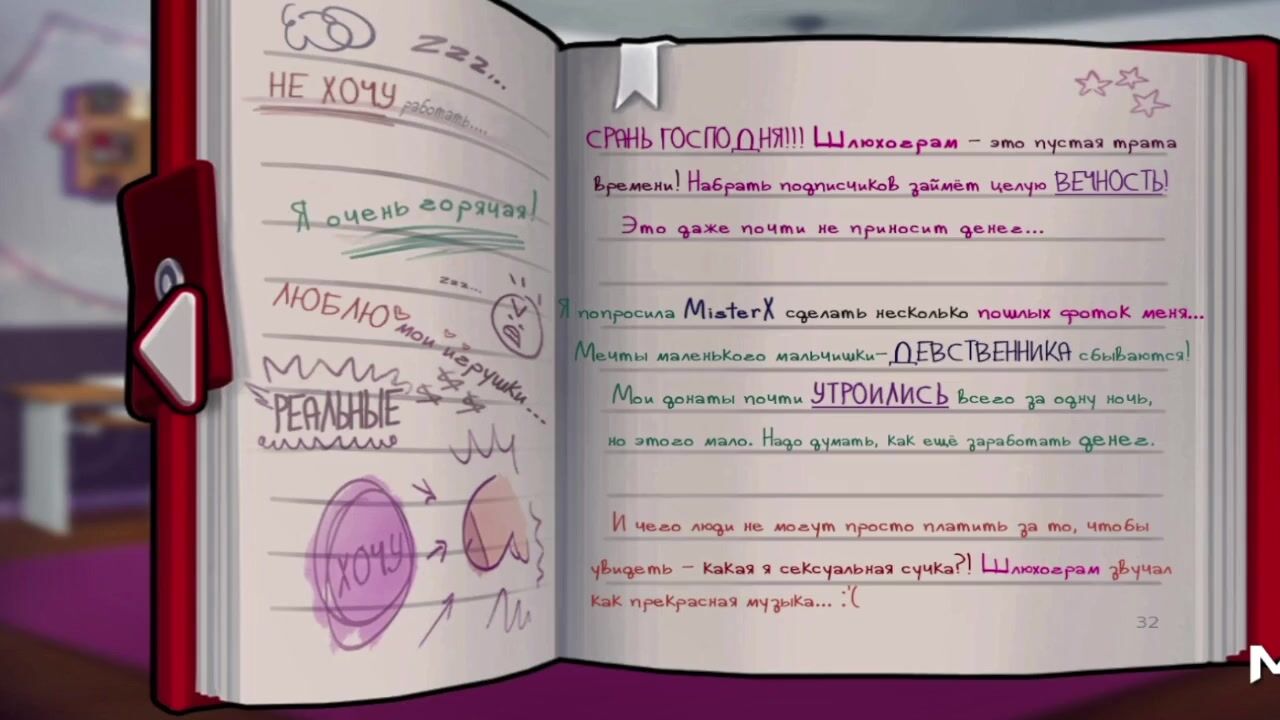 zzz...
НЕ ХОЧУ работать....
Я очень горячая!
zzz...
ЛЮБЛЮ мои игрушки...
РЕАЛЬНЫЕ
ХОЧУ
СРАНЬ ГОСПОДНЯ!!! Шлюхограм – это пустая трата
времени! Набрать подписчиков займёт целую ВЕЧНОСТЬ!
Это даже почти не приносит денег...
Я попросила MisterX сделать несколько пошлых фоток меня...
Мечты маленького мальчишки–ДЕВСТВЕННИКА сбываются!
Мои донаты почти УТРОИЛИСЬ всего за одну ночь,
но этого мало. Надо думать, как ещё заработать денег.
И чего люди не могут просто платить за то, чтобы
увидеть – какая я сексуальная сучка?! Шлюхограм звучал
как прекрасная музыка... :'(
32